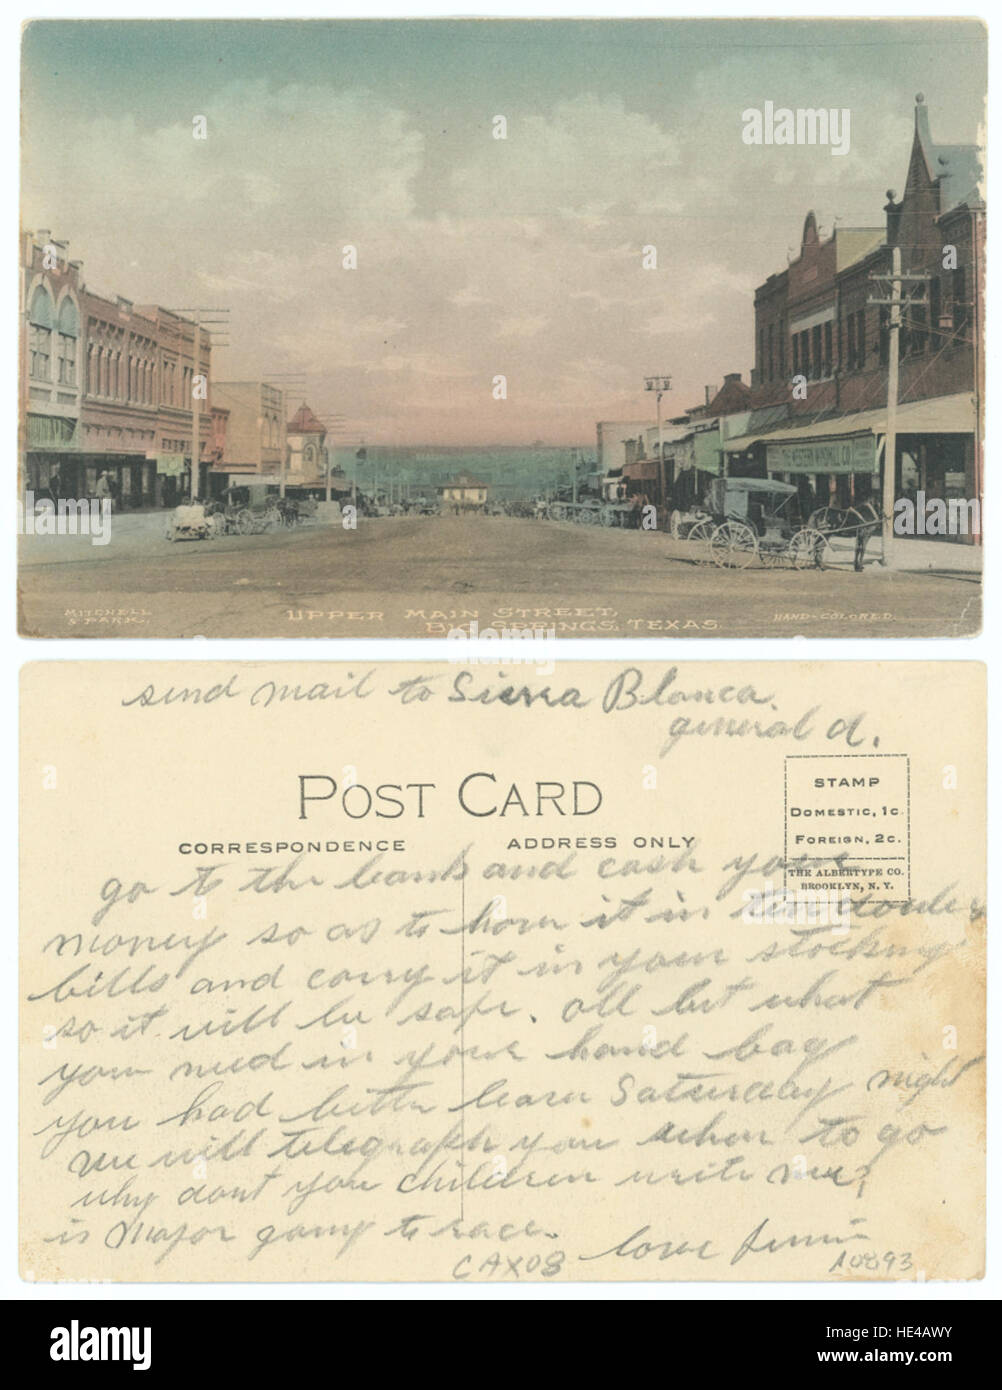 THE WESTERN WINDMILL CO
MITCHELL
& PARK.
UPPER MAIN STREET,
BIG SPRINGS, TEXAS.
HAND-COLORED.
send mail to Sierra Blanca.
general d.
POST CARD
CORRESPONDENCE
ADDRESS ONLY
STAMP
DOMESTIC, 1c.
FOREIGN, 2c.
THE ALBERTYPE CO.
BROOKLYN, N. Y.
go to the bank and cash your
money so as to have it in ten
bills and carry it in your stocking
so it will be safe. all but what
you need in your hand bag
you had better leave Saturday night
we will telegraph you when to go
why dont you children write me?
is Major going to race.
love
CAX08
A0893
alamy
a
a
alamy
a
a
a
a
alamy
a
a
alamy
a
alamy
a
a
alamy
a
a
a
a
alamy
a
a
alamy
alamy
Image ID: HE4AWY
www.alamy.com